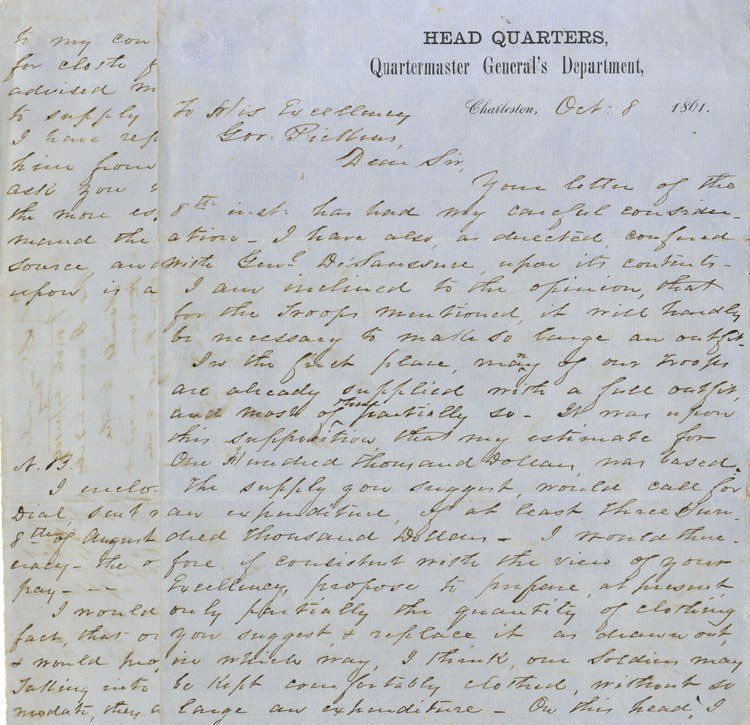 HEAD QUARTERS,
Quartermaster General's Department,
Charleston, Oct: 8 1861.
To His Excellency
Gov. Pickens,
Dear Sir,
Your letter of the
8th inst: has had my careful consider-
ation - I have also, as directed, confered
with Genl. DeSaussure, upon its contents -
I am inclined to the opinion, that
for the Troops mentioned, it will hardly
be necessary to make so large an outfit.
In the first place, many of our Troops
are already supplied with a full outfit,
and most of them partially so - It was upon
this supposition that my estimate for
One Hundred Thousand Dollars, was based.
The supply you suggest, would call for
an expenditure, of at least Three Hun-
dred Thousand Dollars - I would there-
fore, if consistent with the view of your
Excellency, propose to prepare, at present,
only partially the quantity of clothing
you suggest & replace it as drawn out,
in which way, I think, our Soldiers may
be kept comfortably clothed, without so
large an expenditure - On this head, I
to my con
for cloth f
advised m
to supply
I have rep
him from
ask you
the more es
mand the
source, and
upon is a
N.B.
I inclo
Dial, sent
8th of August
cracy - the o
pay - - -
I would
fact, that ou
& would pro
Taking into
modate, they a